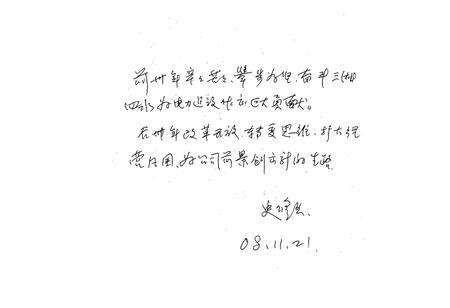 前卅年辛辛苦苦、肇步为继、奋斗三湘
四水为电力建设作出巨大贡献。
在卅年改革开放、转变思维、扩大经
营范围、为公司前景创立新的生路
史
08.11.21.